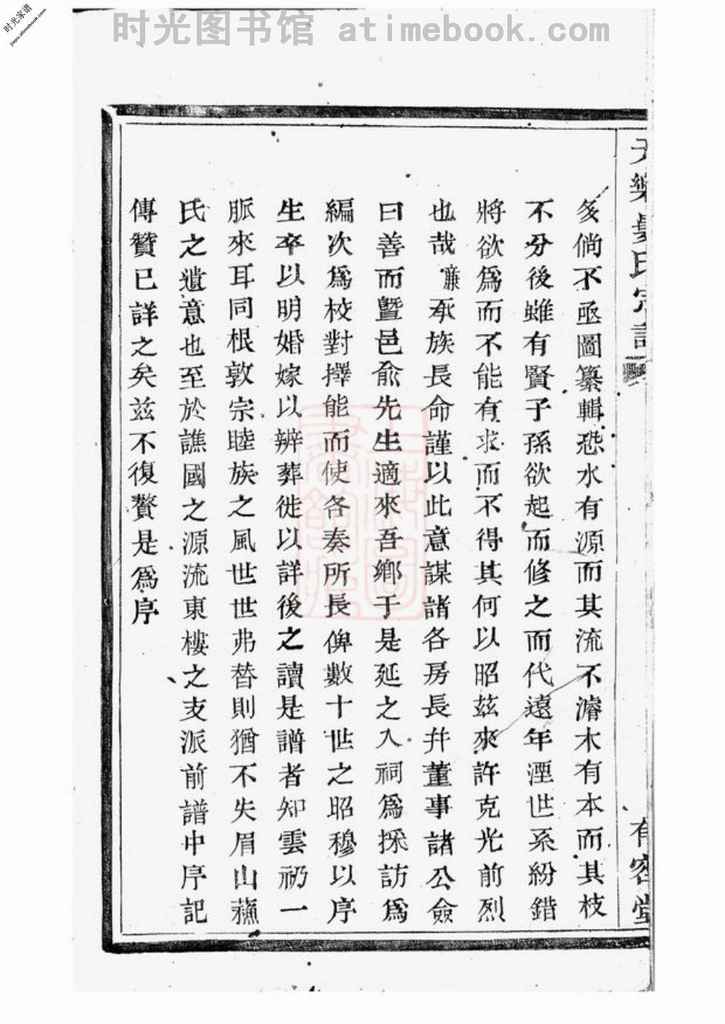 时光图书馆 atimebook.com
时光家谱
氏宗譜
有容堂
多倘不亟圖纂輯恐水有源而其流不濬木有本而其枝
不分後雖有賢子孫欲起而修之而代遠年湮世系紛錯
將欲爲而不能有求而不得其何以昭茲來許克光前烈
也哉廉承族長命謹以此意謀諸各房長幷董事諸公僉
曰善而暨邑兪先生適來吾鄉于是延之入祠爲採訪爲
編次爲校對擇能而使各奏所長俾數十世之昭穆以序
生卒以明婚嫁以辨葬徙以詳後之讀是譜者知雲礽一
脈來耳同根敦宗睦族之風世世弗替則猶不失眉山蘓
氏之遺意也至於譙國之源流東樓之支派前譜中序記
傳贊已詳之矣茲不復贅是爲序